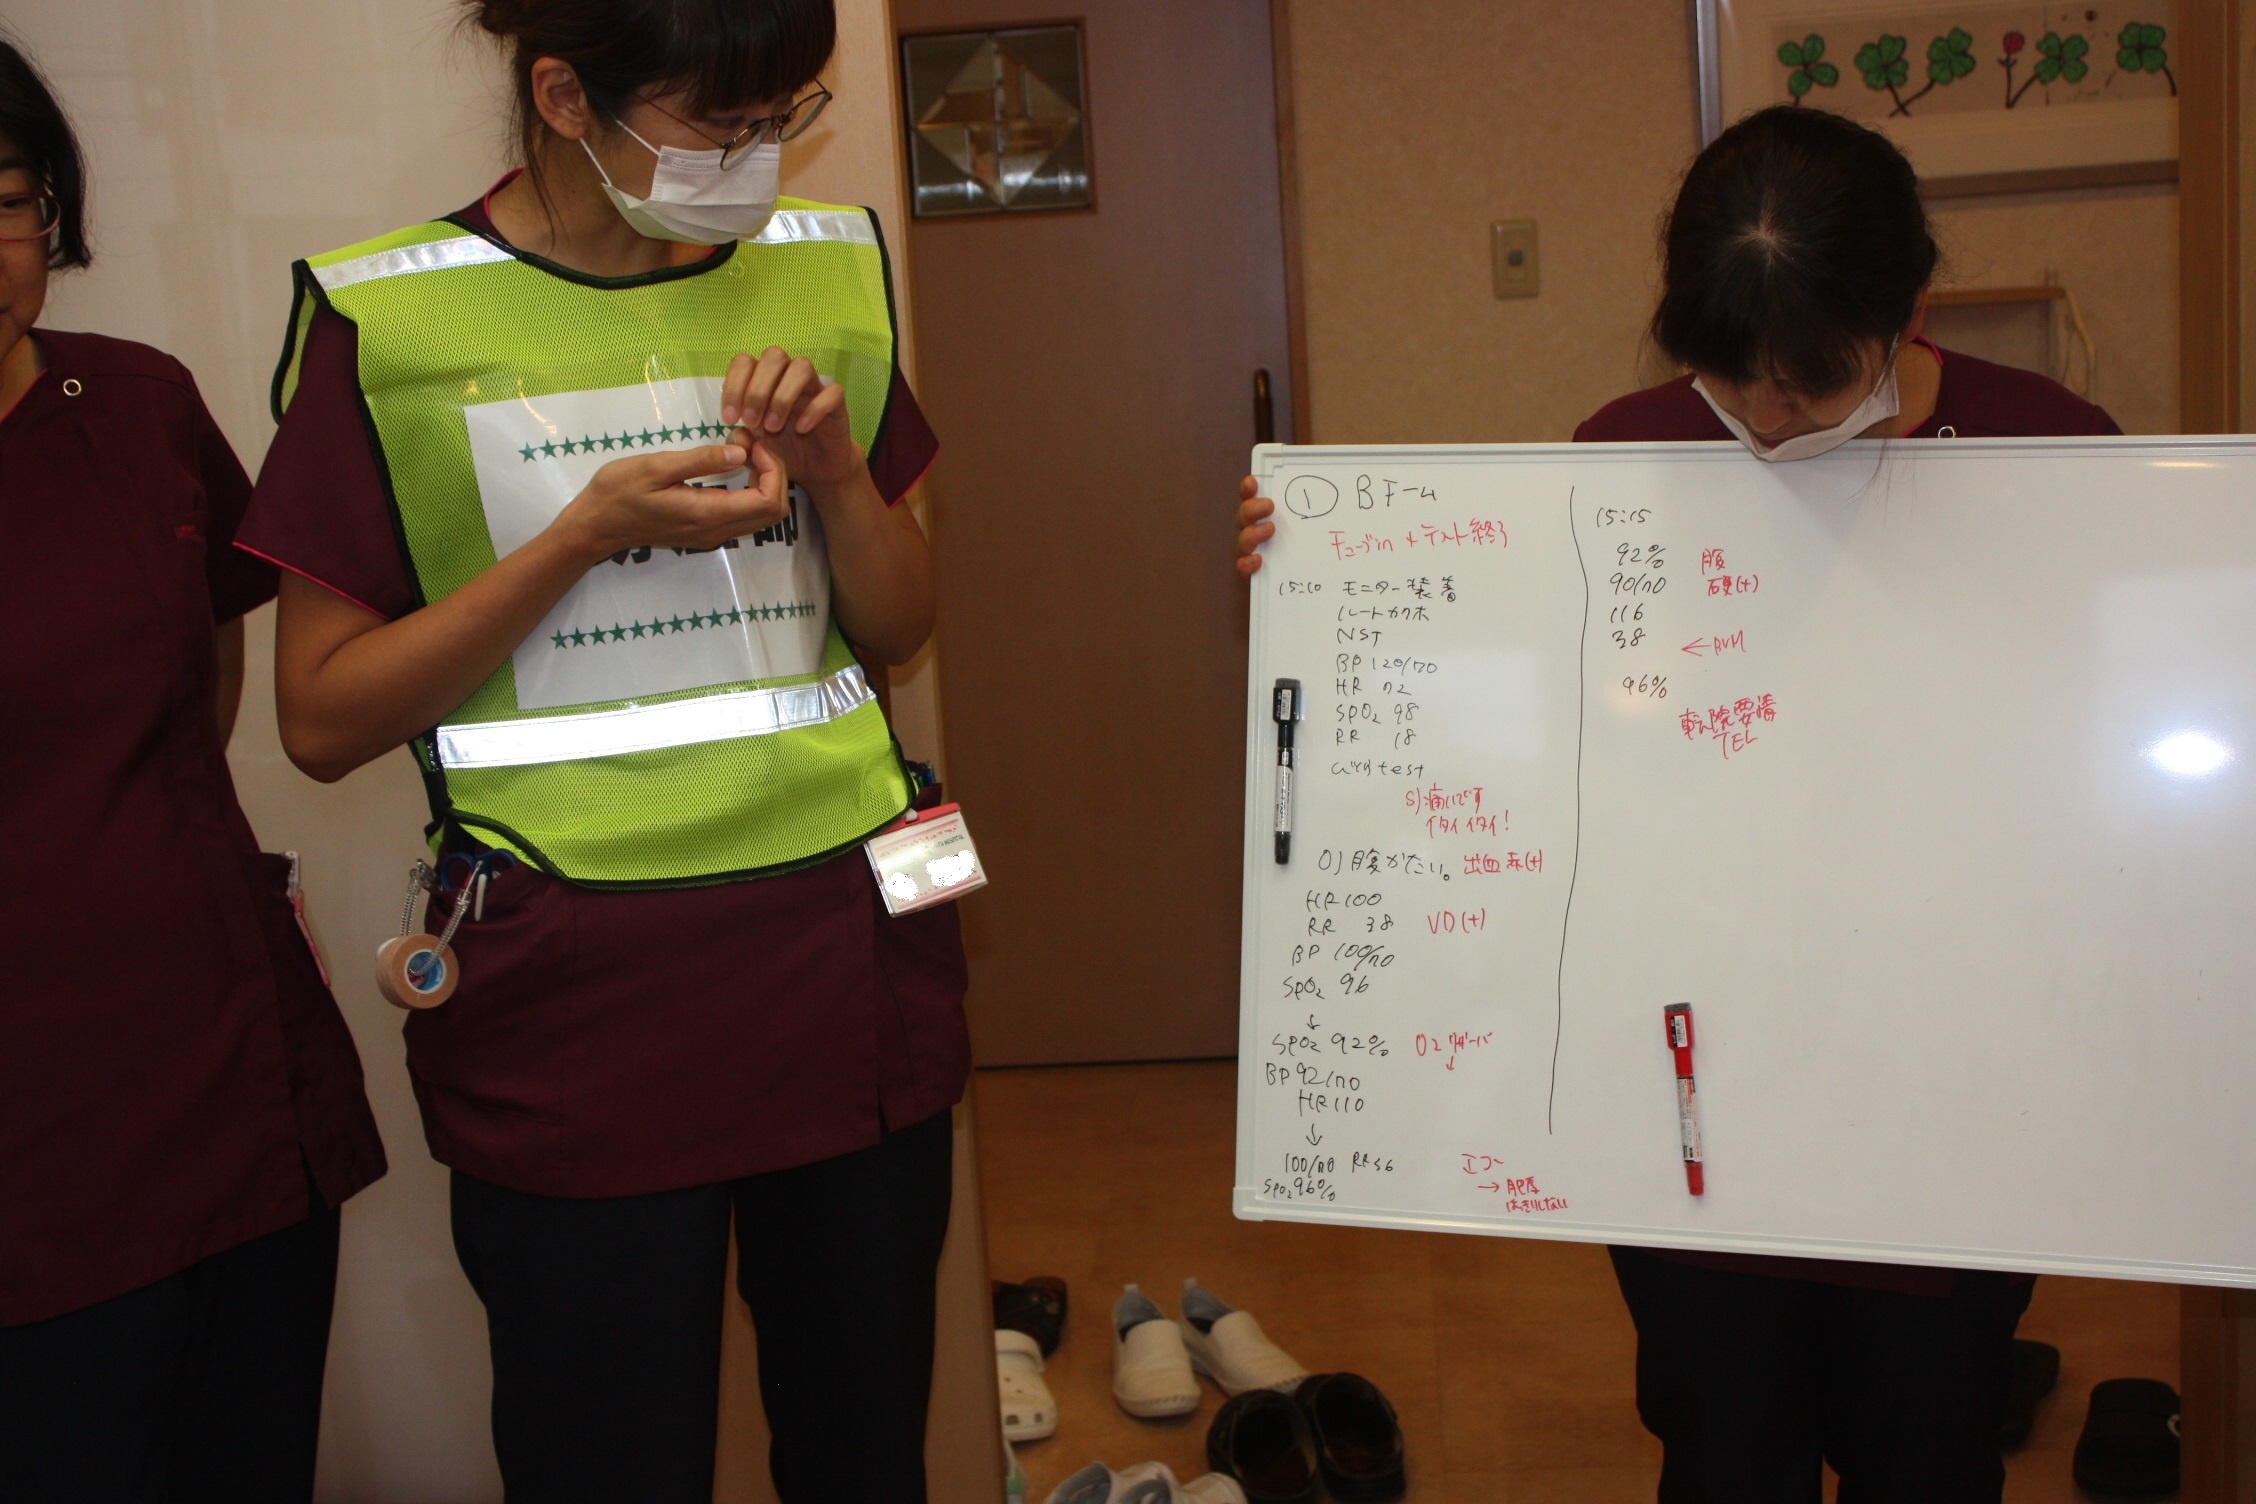 ① Bチーム
チューブin + テスト終了
15:10 モニター装着
ルートカクホ
NST
BP 120/70
HR 72
SPO2 98
RR 18
test
S) 痛いです
イタイイタイ!
O) 腹かたい。 出血赤(+)
HR 100
RR 38 VD(+)
BP 100/70
SpO2 96
↓
SPO2 92% O2 リザーバ
↓
BP 92/70
HR 110
↓
100/70 RR 36
SPO2 96%
エコー
→ 肥厚
はっきりしない
15:15
92% 腹
90/70 硬(+)
116
38 ← BVM
96%
転院要請
TEL
★★★★★★★★★★★
師
★★★★★★★★★★★★★★